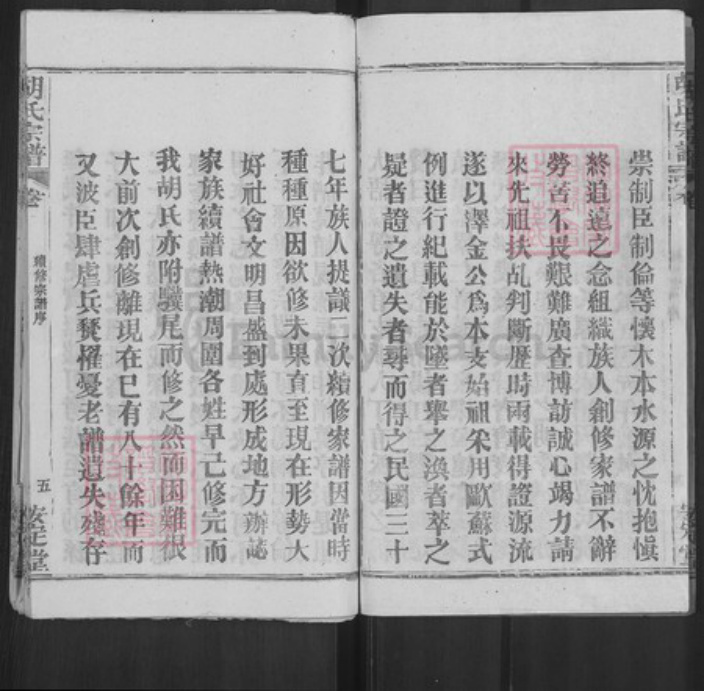 崇制臣制倫等懷木本水源之忱抱愼
終追遠之念組織族人創修家譜不辭
勞苦不畏艱難廣查博訪誠心竭力請
來先祖扶乩判斷歷時兩載得證源流
遂以澤金公爲本支始祖采用歐蘇式
例進行紀載能於墜者舉之渙者萃之
疑者證之遺失者尋而得之民國三十
七年族人提議二次續修家譜因當時
種種原因欲修未果直至現在形勢大
好社會文明昌盛到處形成地方辦誌
家族續譜熱潮周圍各姓早已修完而
我胡氏亦附驥尾而修之然而困難很
大前次創修離現在已有八十餘年而
又波臣肆虐兵燹催憂老譜遺失殘存
胡氏宗譜
卷
續修宗譜序
五
安定堂